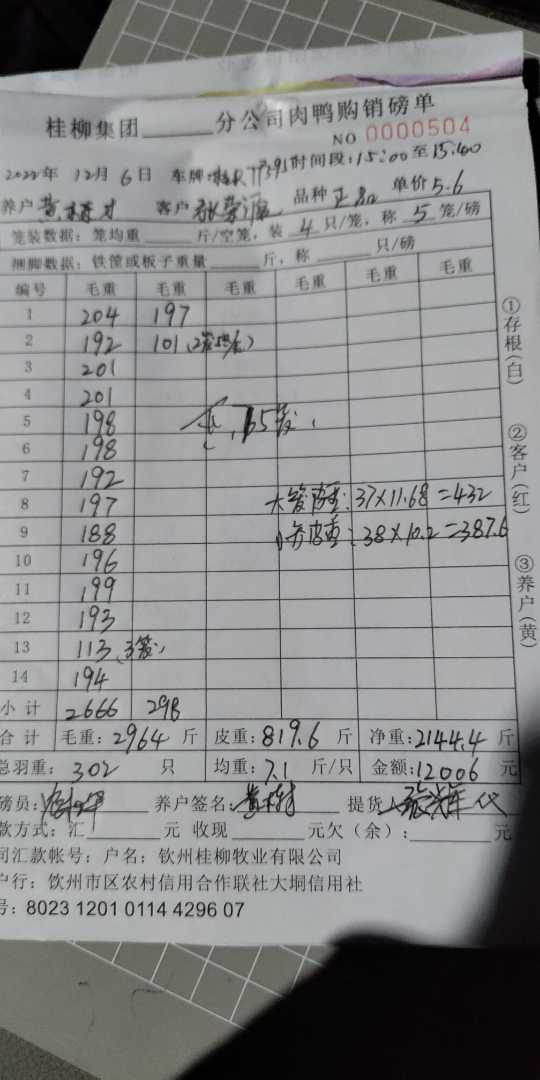 桂柳集团______分公司肉鸭购销磅单
NO 0000504
2022年 12月 6日 车牌: 时间段:15:00至15:40
养户 客户 品种 单价5.6
笼装数据:笼均重______斤/空笼,装 4 只/笼,称 5 笼/磅
捆脚数据:铁筐或板子重量______斤,称______只/磅
编号 毛重 毛重 毛重 毛重 毛重 毛重
1 204 197
2 192 101
3 201
4 201
5 198
6 198
7 192
8 197 37×11.68=432
9 188 38×10.2=387.6
10 196
11 199
12 193
13 113
14 194
小 计 2666 298
合 计 毛重:2964 斤 皮重:819.6 斤 净重:2144.4 斤
总羽重: 302 只 均重:7.1 斤/只 金额:12006 元
磅员: 养户签名: 提货人
款方式:汇______元 收现______元欠(余):______元
司汇款帐号:户名:钦州桂柳牧业有限公司
户行:钦州市区农村信用合作联社大垌信用社
号:8023 1201 0114 4296 07
①存根(白)
②客户(红)
③养户(黄)